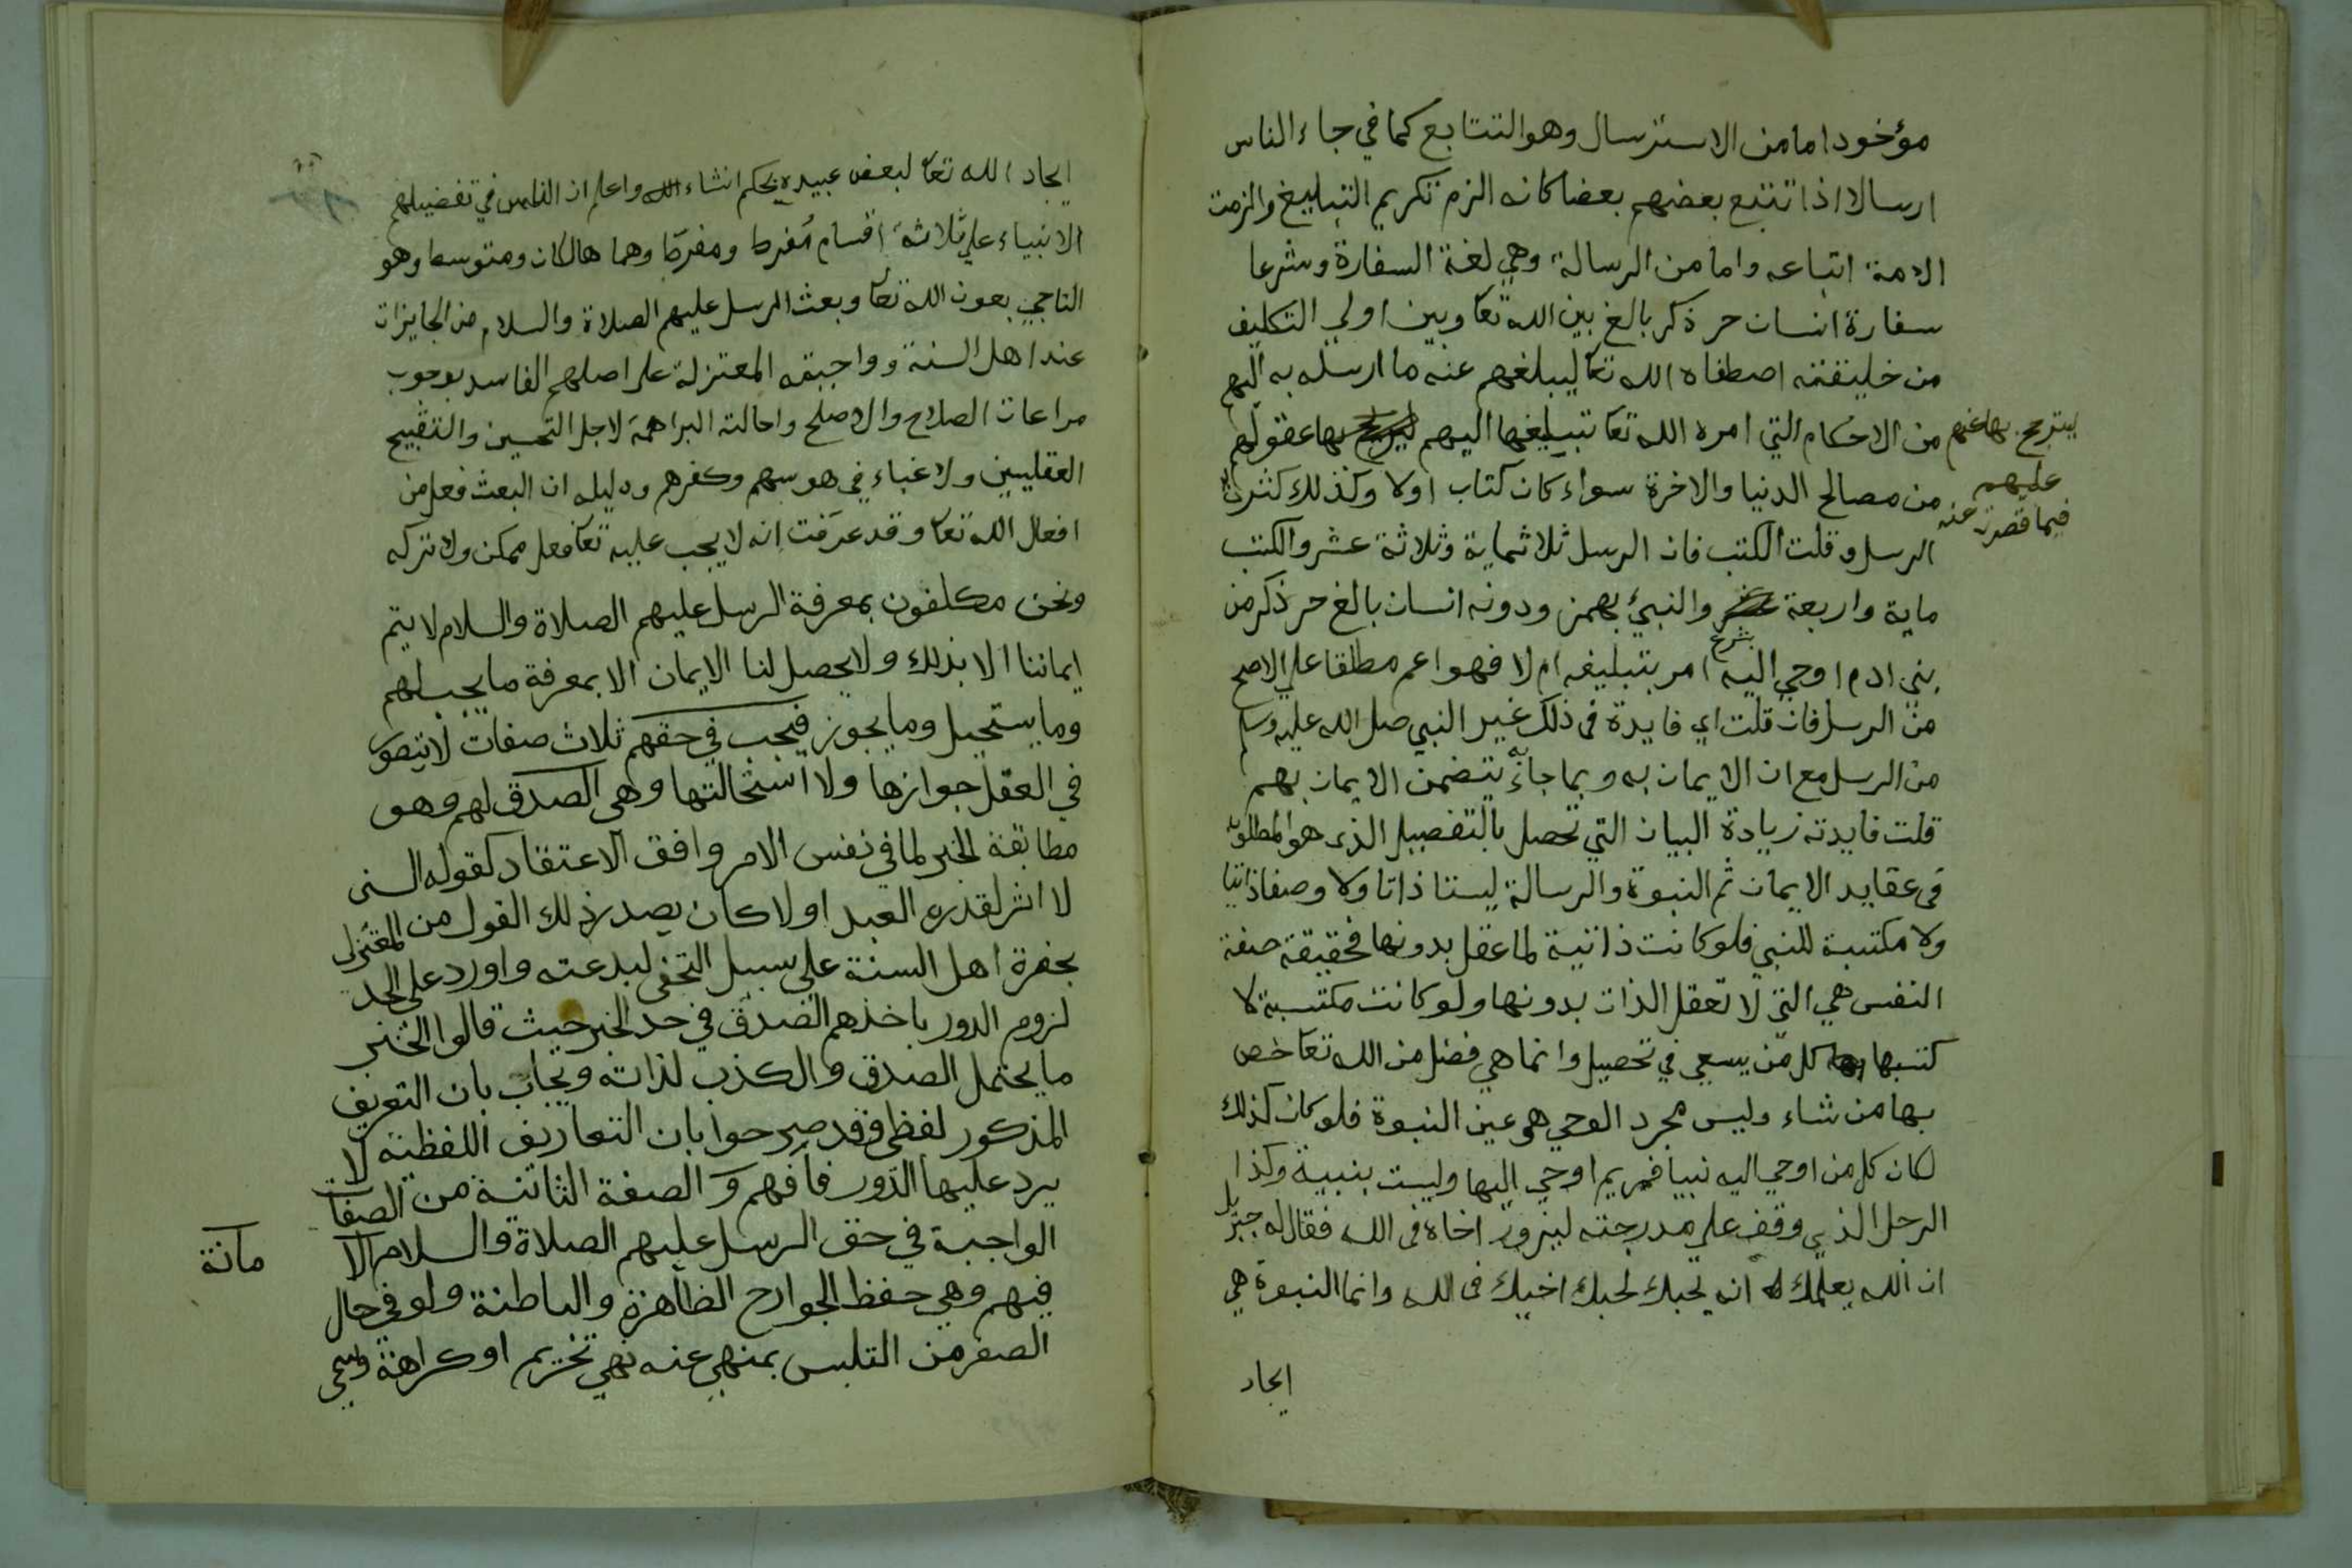 مؤخود اما من الاسترسال وهو التتابع كما في جاء الناس
ارسالا اذا تتبع بعضهم بعضا كانه الزم تكريم التبليغ والزمت
الامة اتباعه واما من الرسالة وهي لغة السفارة وشرعا
سفارة انسان حر ذكر بالغ بين الله تعا وبين اولي التكليف
من خليقته اصطفاه الله تعا ليبلغهم عنه ما ارسله به اليهم
من الاحكام التي امره الله تعا تبليغها اليهم بها عقولهم
من مصالح الدنيا والاخرة سواء كان كتاب اولا وكذلك كثرت
الرسل وقلت الكتب فان الرسل ثلاثماية وثلاثة عشر والكتب
ماية واربعة والنبئ بهمز ودونه انسان بالغ حر ذكر من
بني ادم اوحي اليه بشرع امر بتبليغه ام لا فهو اعم مطلقا علي الاصح
من الرسل فان قلت اي فايدة في ذلك غير النبي صلى الله عليه وسلم
من الرسل مع ان الايمان به وبما جاء به يتضمن الايمان بهم
قلت فايدته زيادة البيان التي تحصل بالتفصيل الذي هو المطلوب
في عقايد الايمان ثم النبوة والرسالة ليستا ذاتا ولا وصفا ذاتيا
ولا مكتسبة للنبي فلو كانت ذاتية لما عقل بدونها فحقيقة صفة
النفس هي التي لا تعقل الذات بدونها ولو كانت مكتسبة لا
كتسبها كل من يسعى في تحصيل وانما هي فضل من الله تعا خص
بها من شاء وليس مجرد الوحي هو عين النبوة فلو كان كذلك
لكان كل من اوحي اليه نبيا فمريم اوحي اليها وليست بنبية وكذا
الرجل الذي وقف علي مدرجته ليزور اخاه في الله فقال له جبريل
ان الله يعلمك انه يحبك لحبك اخيك في الله وانما النبوة هي
ايجاد
يترجح بها عنهم
عليهم
فيما قصرت عنه
ايجاد الله تعا لبعض عبيده بحكم انشاء الله واعلم ان الناس في تفضيلهم
الانبياء علي ثلاثة اقسام مُفرط ومفرّط وهما هالكان ومتوسط وهو
الناجي بعون الله تعا وبعث الرسل عليهم الصلاة والسلام من الجايزات
عند اهل السنة وواجبة المعتزلة علي اصلهم الفاسد بوجوب
مراعات الصلاح والاصلح واحالته البراهمة لاجل التحسين والتقبيح
العقليين ولا غباء في هوسهم وكفرهم ودليله ان البعث فعل من
افعال الله تعا وقد عرفت انه لا يجب عليه تعا فعل ممكن ولا تركه
ونحن مكلفون بمعرفة الرسل عليهم الصلاة والسلام لا يتم
ايماننا الا بذلك ولا يحصل لنا الايمان الا بمعرفة ما يجب لهم
وما يستحيل وما يجوز فيجب في حقهم ثلاث صفات لا يتصور
في العقل جوازها ولا استحالتها وهي الصدق لهم وهو
مطابقة الخبر لما في نفس الامر وافق الاعتقاد كقوله السني
لا اثر لقدره العبد اولا كان يصدر ذلك القول من المعتزل
بحفرة اهل السنة علي سبيل التخفي لبدعته واورد علي الحد
لزوم الدور باخذهم الصدق في حد الخبر حيث قالوا الخبر
ما يحتمل الصدق والكذب لذاته ويجاب بان التعريف
المذكور لفظي وقد صرحوا بان التعاريف اللفظية لا
يرد عليها الدور فافهم والصفة الثانية من الصفات
الواجبة في حق الرسل عليهم الصلاة والسلام الا
مانة
فيهم وهي حفظ الجوارح الظاهرة والباطنة ولو في حال
الصغر من التلبس بمنهي عنه نهي تحريم او كراهة